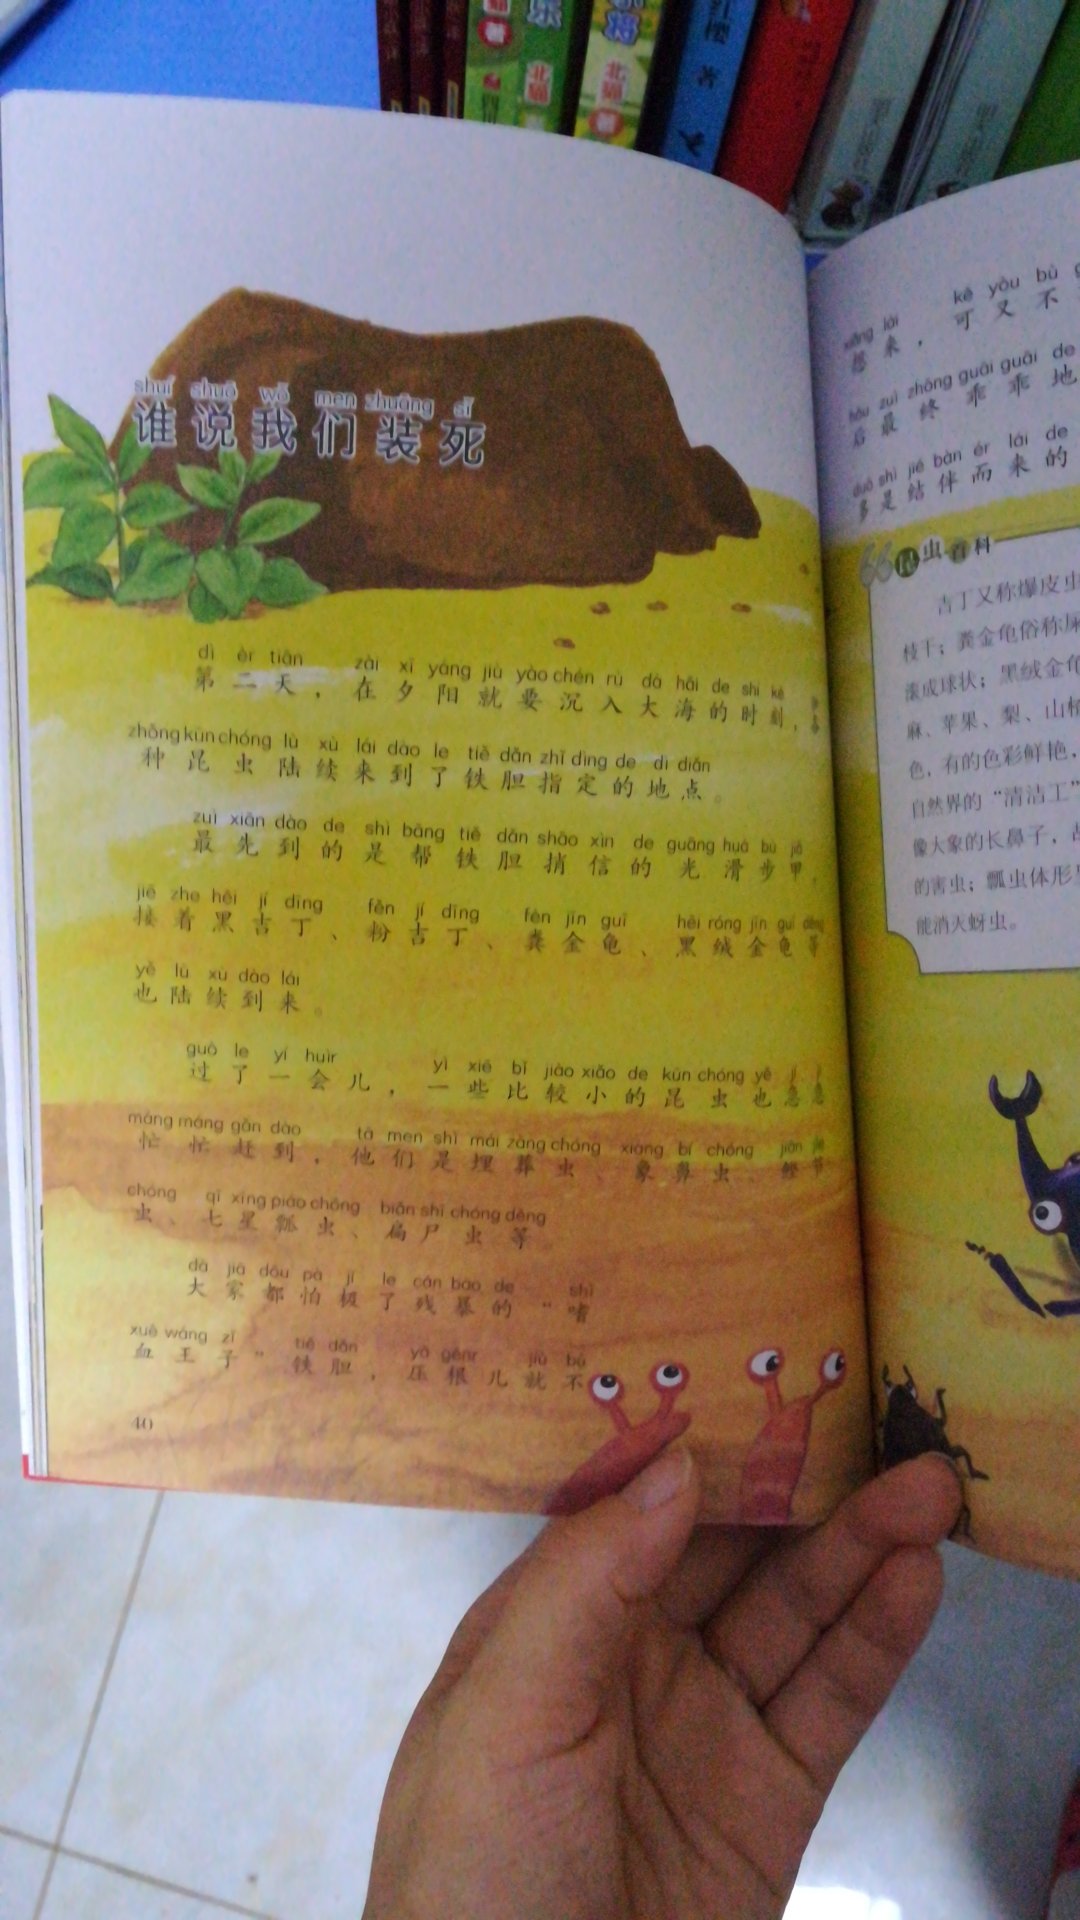 shuí shuō wǒ men zhuāng sǐ
谁说我们装死
dì èr tiān zài xī yáng jiù yào chén rù dà hǎi de shí kè
第二天，在夕阳就要沉入大海的时刻，
zhǒng kūn chóng lù xù lái dào le tiě dǎn zhǐ dìng de dì diǎn
种昆虫陆续来到了铁胆指定的地点。
zuì xiān dào de shì bāng tiě dǎn shāo xìn de guāng huá bù jiǎ
最先到的是帮铁胆捎信的光滑步甲，
jiē zhe hēi jí dīng fěn jí dīng fèn jīn guī hēi róng jīn guī děng
接着黑吉丁、粉吉丁、粪金龟、黑绒金龟等
yě lù xù dào lái
也陆续到来。
guò le yí huìr yì xiē bǐ jiào xiǎo de kūn chóng yě jí jí
过了一会儿，一些比较小的昆虫也急急
máng máng gǎn dào tā men shì mái zàng chóng xiàng bí chóng
忙忙赶到，他们是埋葬虫、象鼻虫、鲣节
chóng qī xīng piáo chóng biǎn shī chóng děng
虫、七星瓢虫、扁尸虫等。
dà jiā dōu pà jí le cán bào de shì
大家都怕极了残暴的“嗜
xuè wáng zǐ tiě dǎn yà gēnr jiù bú
血王子”铁胆，压根儿就不
40
xiǎng lái kě yòu bù
想来，可又不
hòu zuì zhōng guāi guāi de
后最终乖乖地
duō shì jié bàn ér lái de
多是结伴而来的
昆虫百科
吉丁又称爆皮虫
枝干；粪金龟俗称屎
滚成球状；黑绒金龟
麻、苹果、梨、山楂
色，有的色彩鲜艳，
自然界的“清洁工”
像大象的长鼻子，
的害虫；瓢虫体形
能消灭蚜虫。
北猫
著
北猫
著
著